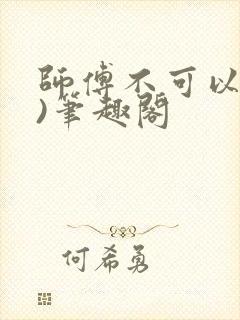 師傅不可以
)筆趣閣
何希勇